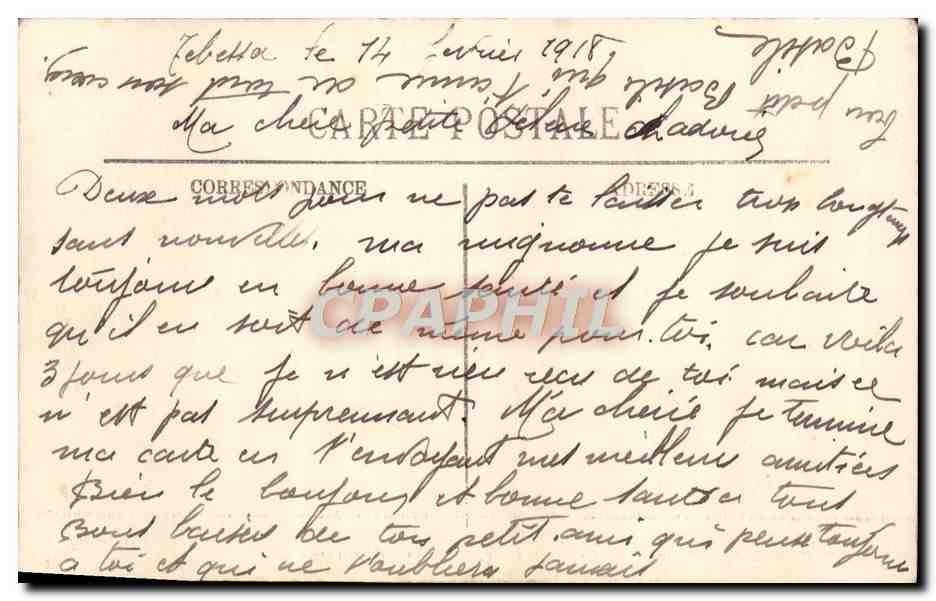 Tebessa le 14 fevrier 1918
CARTE POSTALE
Ma chère petite adorée
CORRESPONDANCE
ADRESSE
Deux mots pour ne pas te laisser trop longtemps
sans nouvelles. ma mignonne je suis
toujours en bonne santé et je souhaite
qu'il en soit de même pour toi, car voila
3 jours que je n'est rien recu de toi mais ce
n'est pas surprennant. Ma cherie je termine
ma carte en t'envoyant mes meilleurs amitiées
Bien le bonjour et bonne santée a tous
Bons baisers de ton petit ami qui pense toujours
a toi et qui ne t'oubliera jamais
ton petit Batiste qui t'aime de tout son cœur
Batiste
CPAPHIL